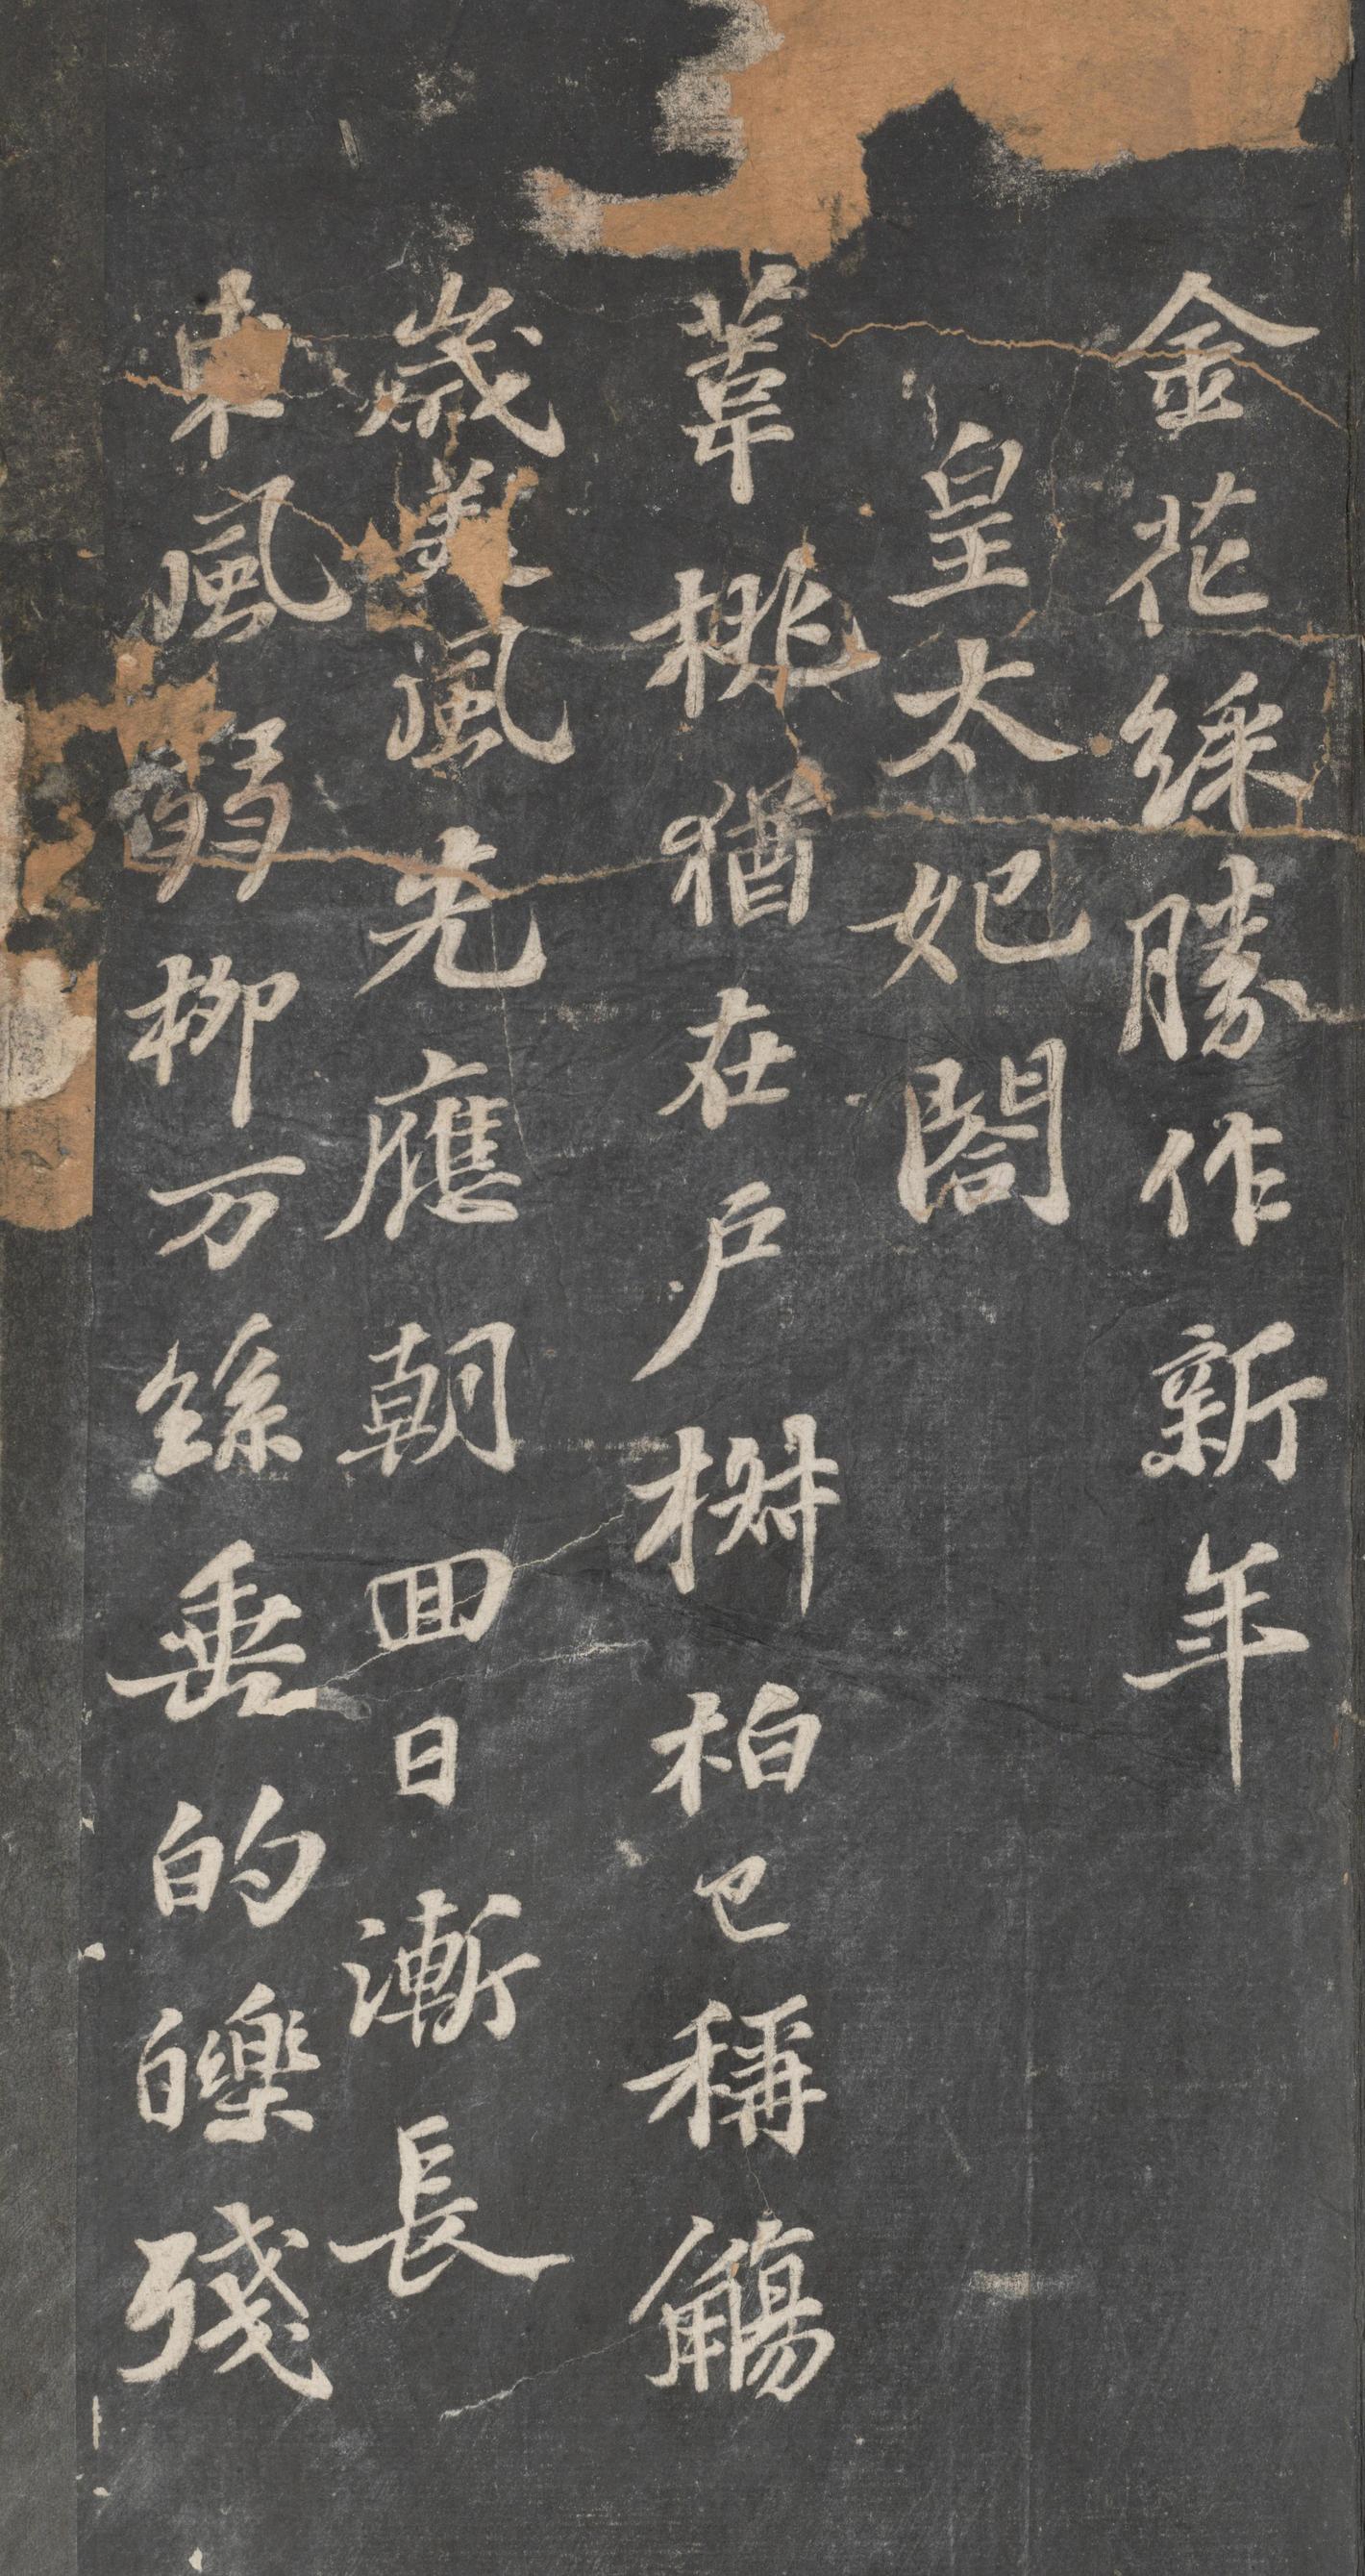 金花綵勝作新年
皇太妃閣
葦桃猶在戶椒柏已稱觴
歲美風先應朝囬日漸長
東風弱柳万絲垂的皪殘